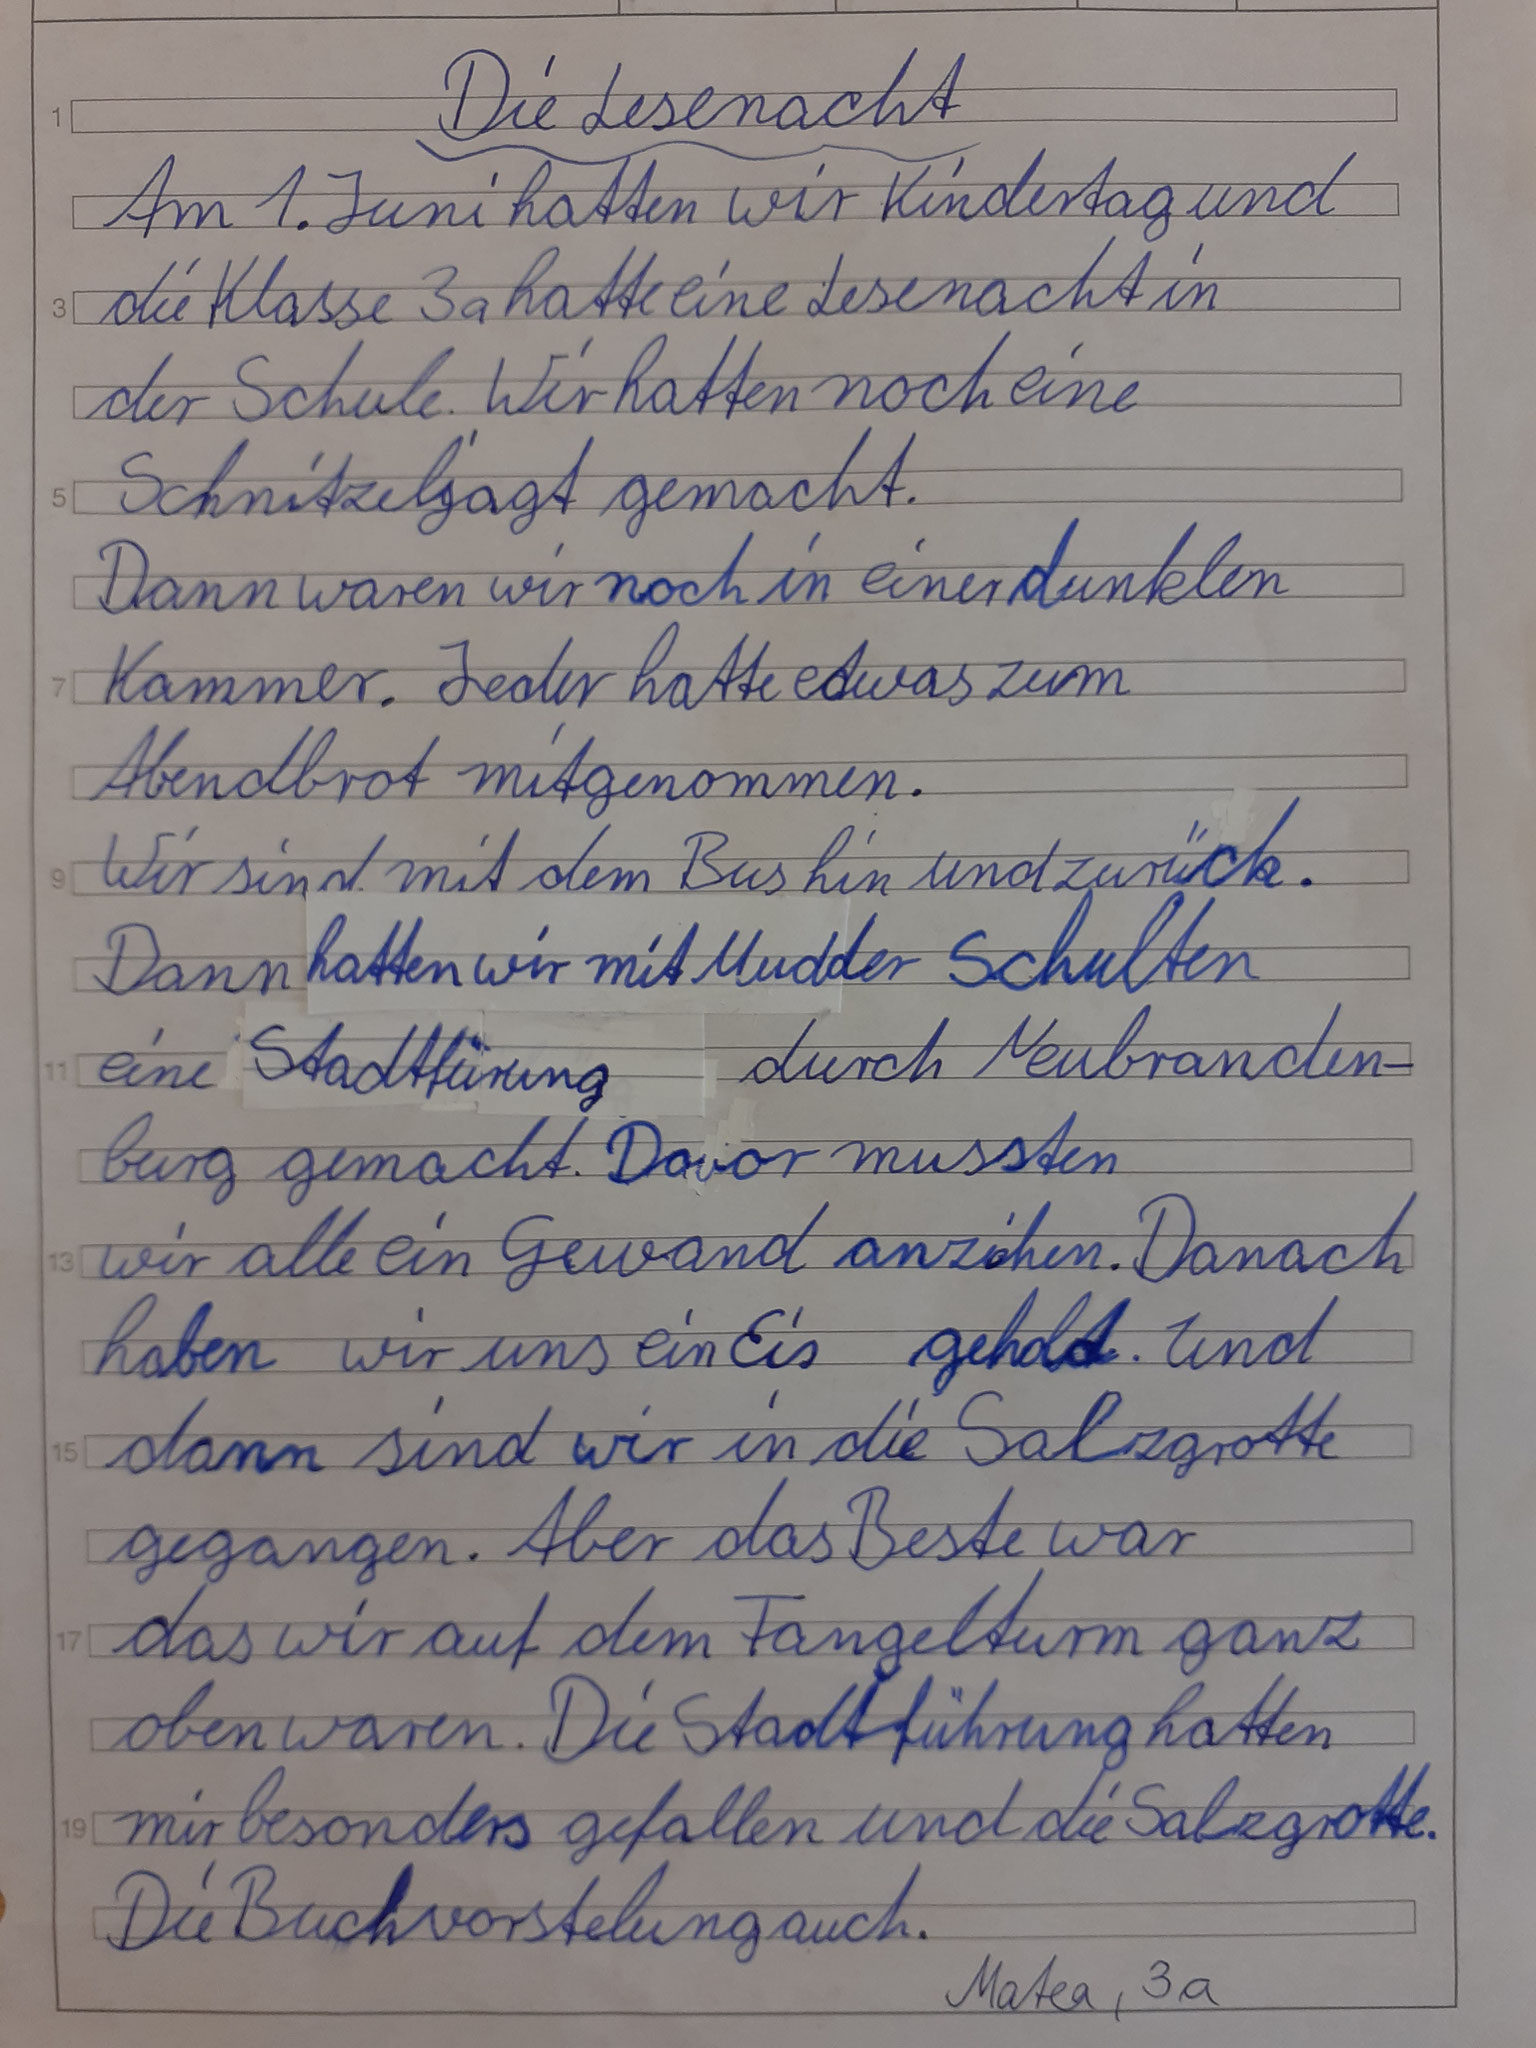 Die Lesenacht
Am 1. Juni hatten wir Kindertag und
die Klasse 3a hatte eine Lesenacht in
der Schule. Wir hatten noch eine
Schnitzeljagt gemacht.
Dann waren wir noch in einer dunklen
Kammer. Jeder hatte etwas zum
Abendbrot mitgenommen.
Wir sind mit dem Bus hin und zurück.
Dann hatten wir mit Mudder Schulten
eine Stadtfürung durch Neubranden-
burg gemacht. Davor mussten
wir alle ein Gewand anziehen. Danach
haben wir uns ein Eis geholt. Und
dann sind wir in die Salzgrotte
gegangen. Aber das Beste war
das wir auf dem Fangelturm ganz
oben waren. Die Stadtführung hatten
mir besonders gefallen und die Salzgrotte.
Die Buchvorstelung auch.
Matea, 3a
1
3
5
7
9
11
13
15
17
19